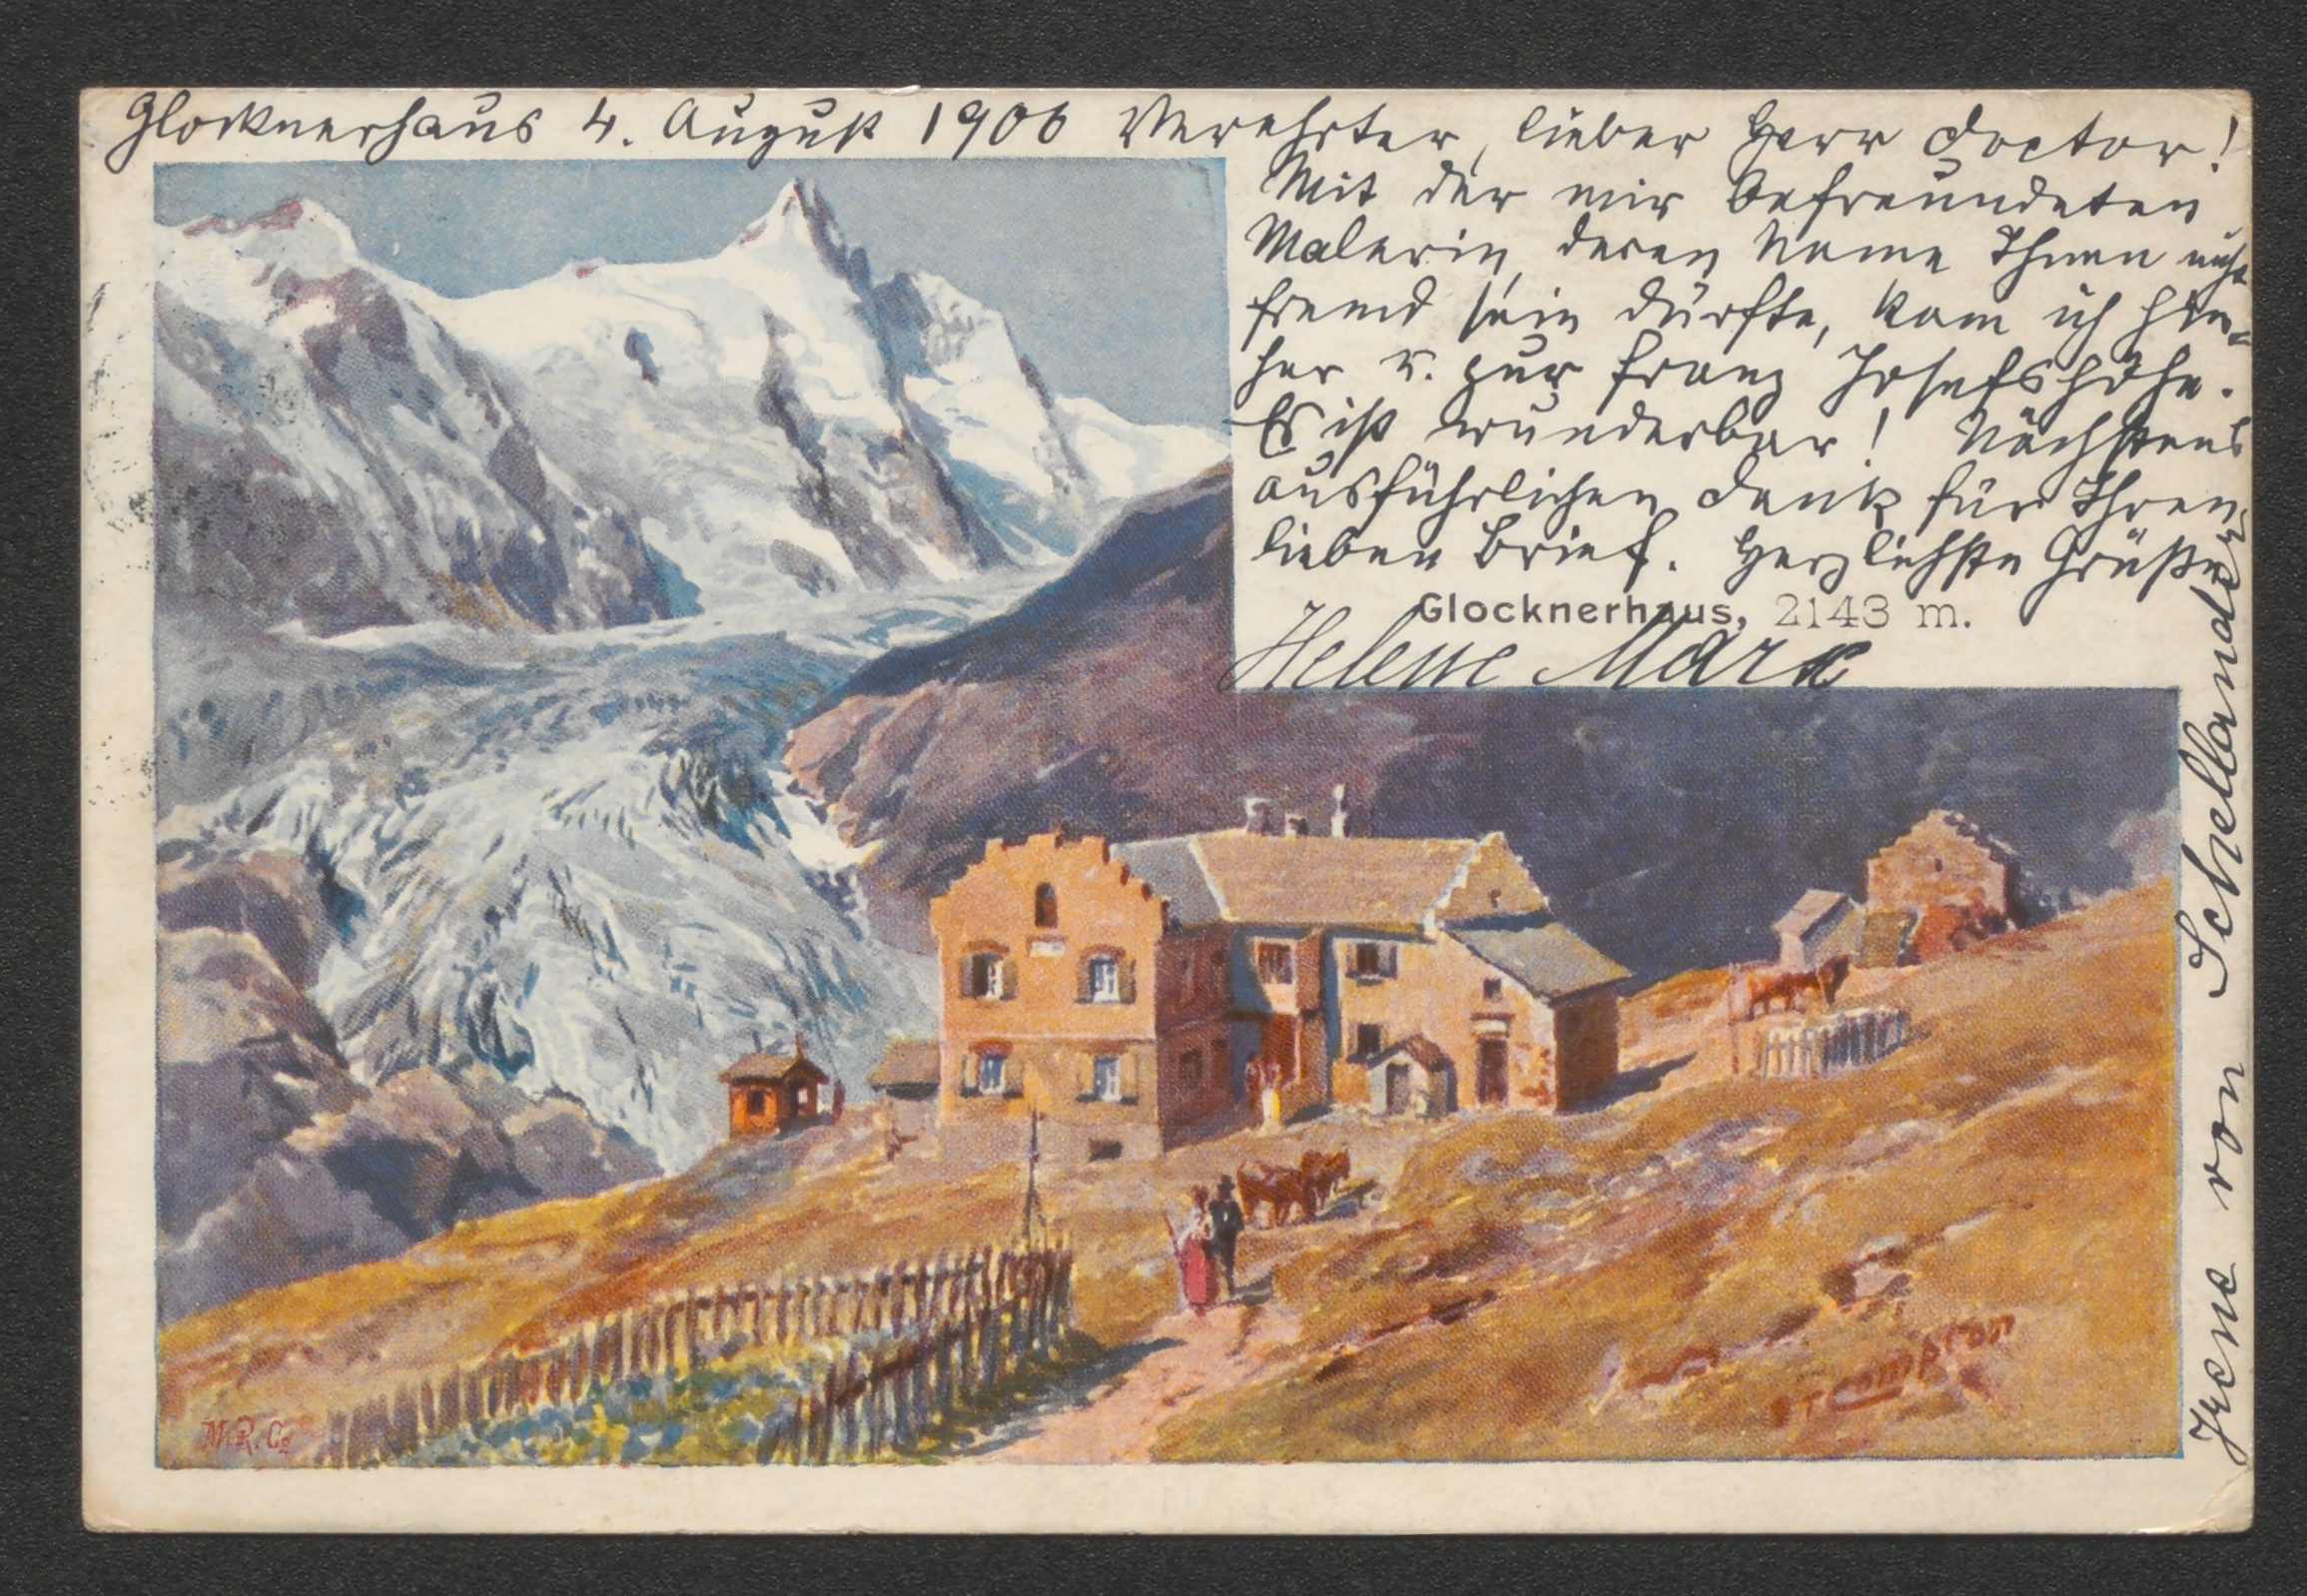 Glocknerhaus 4. August 1906 Verehrter, lieber Herr Doctor!
Mit der mir befreundeten
Malerin, deren Name Ihnen nicht
fremd sein dürfte, kam ich hie-
her u. zur Franz Josefshöhe.
Es ist wunderbar! Nächstens
ausführlichen Dank für Ihren
lieben Brief. Herzlichste Grüße
Glocknerhaus, 2143 m.
Helene Marx
Irene von Schellander
ETCompton
M.R.Co